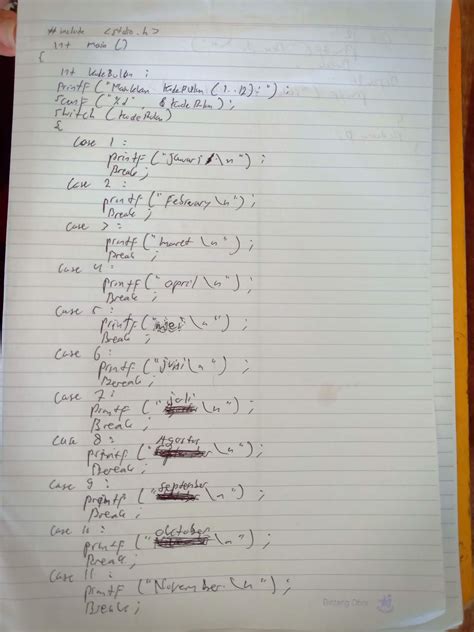 #include <stdio.h>
int main ()
{
int kodeBulan ;
printf ("Masukkan KodeBulan (1..12):") ;
scanf ("%d", & KodeBulan) ;
switch (KodeBulan)
{
Case 1 :
printf ("Januari \n") ;
Break ;
Case 2 :
printf ("February \n") ;
Break ;
Case 3 :
printf ("maret \n") ;
Break ;
Case 4 :
printf ("april \n") ;
Break ;
Case 5 :
printf ("mei \n") ;
Break ;
Case 6 :
printf ("juni \n") ;
Break ;
Case 7 :
printf ("juli \n") ;
Break ;
Case 8 :
printf ("Agustus \n") ;
Break ;
Case 9 :
printf ("September \n") ;
Break ;
Case 10 :
printf ("oktober \n") ;
Break ;
Case 11 :
printf ("November \n") ;
Break ;
Bintang Obor